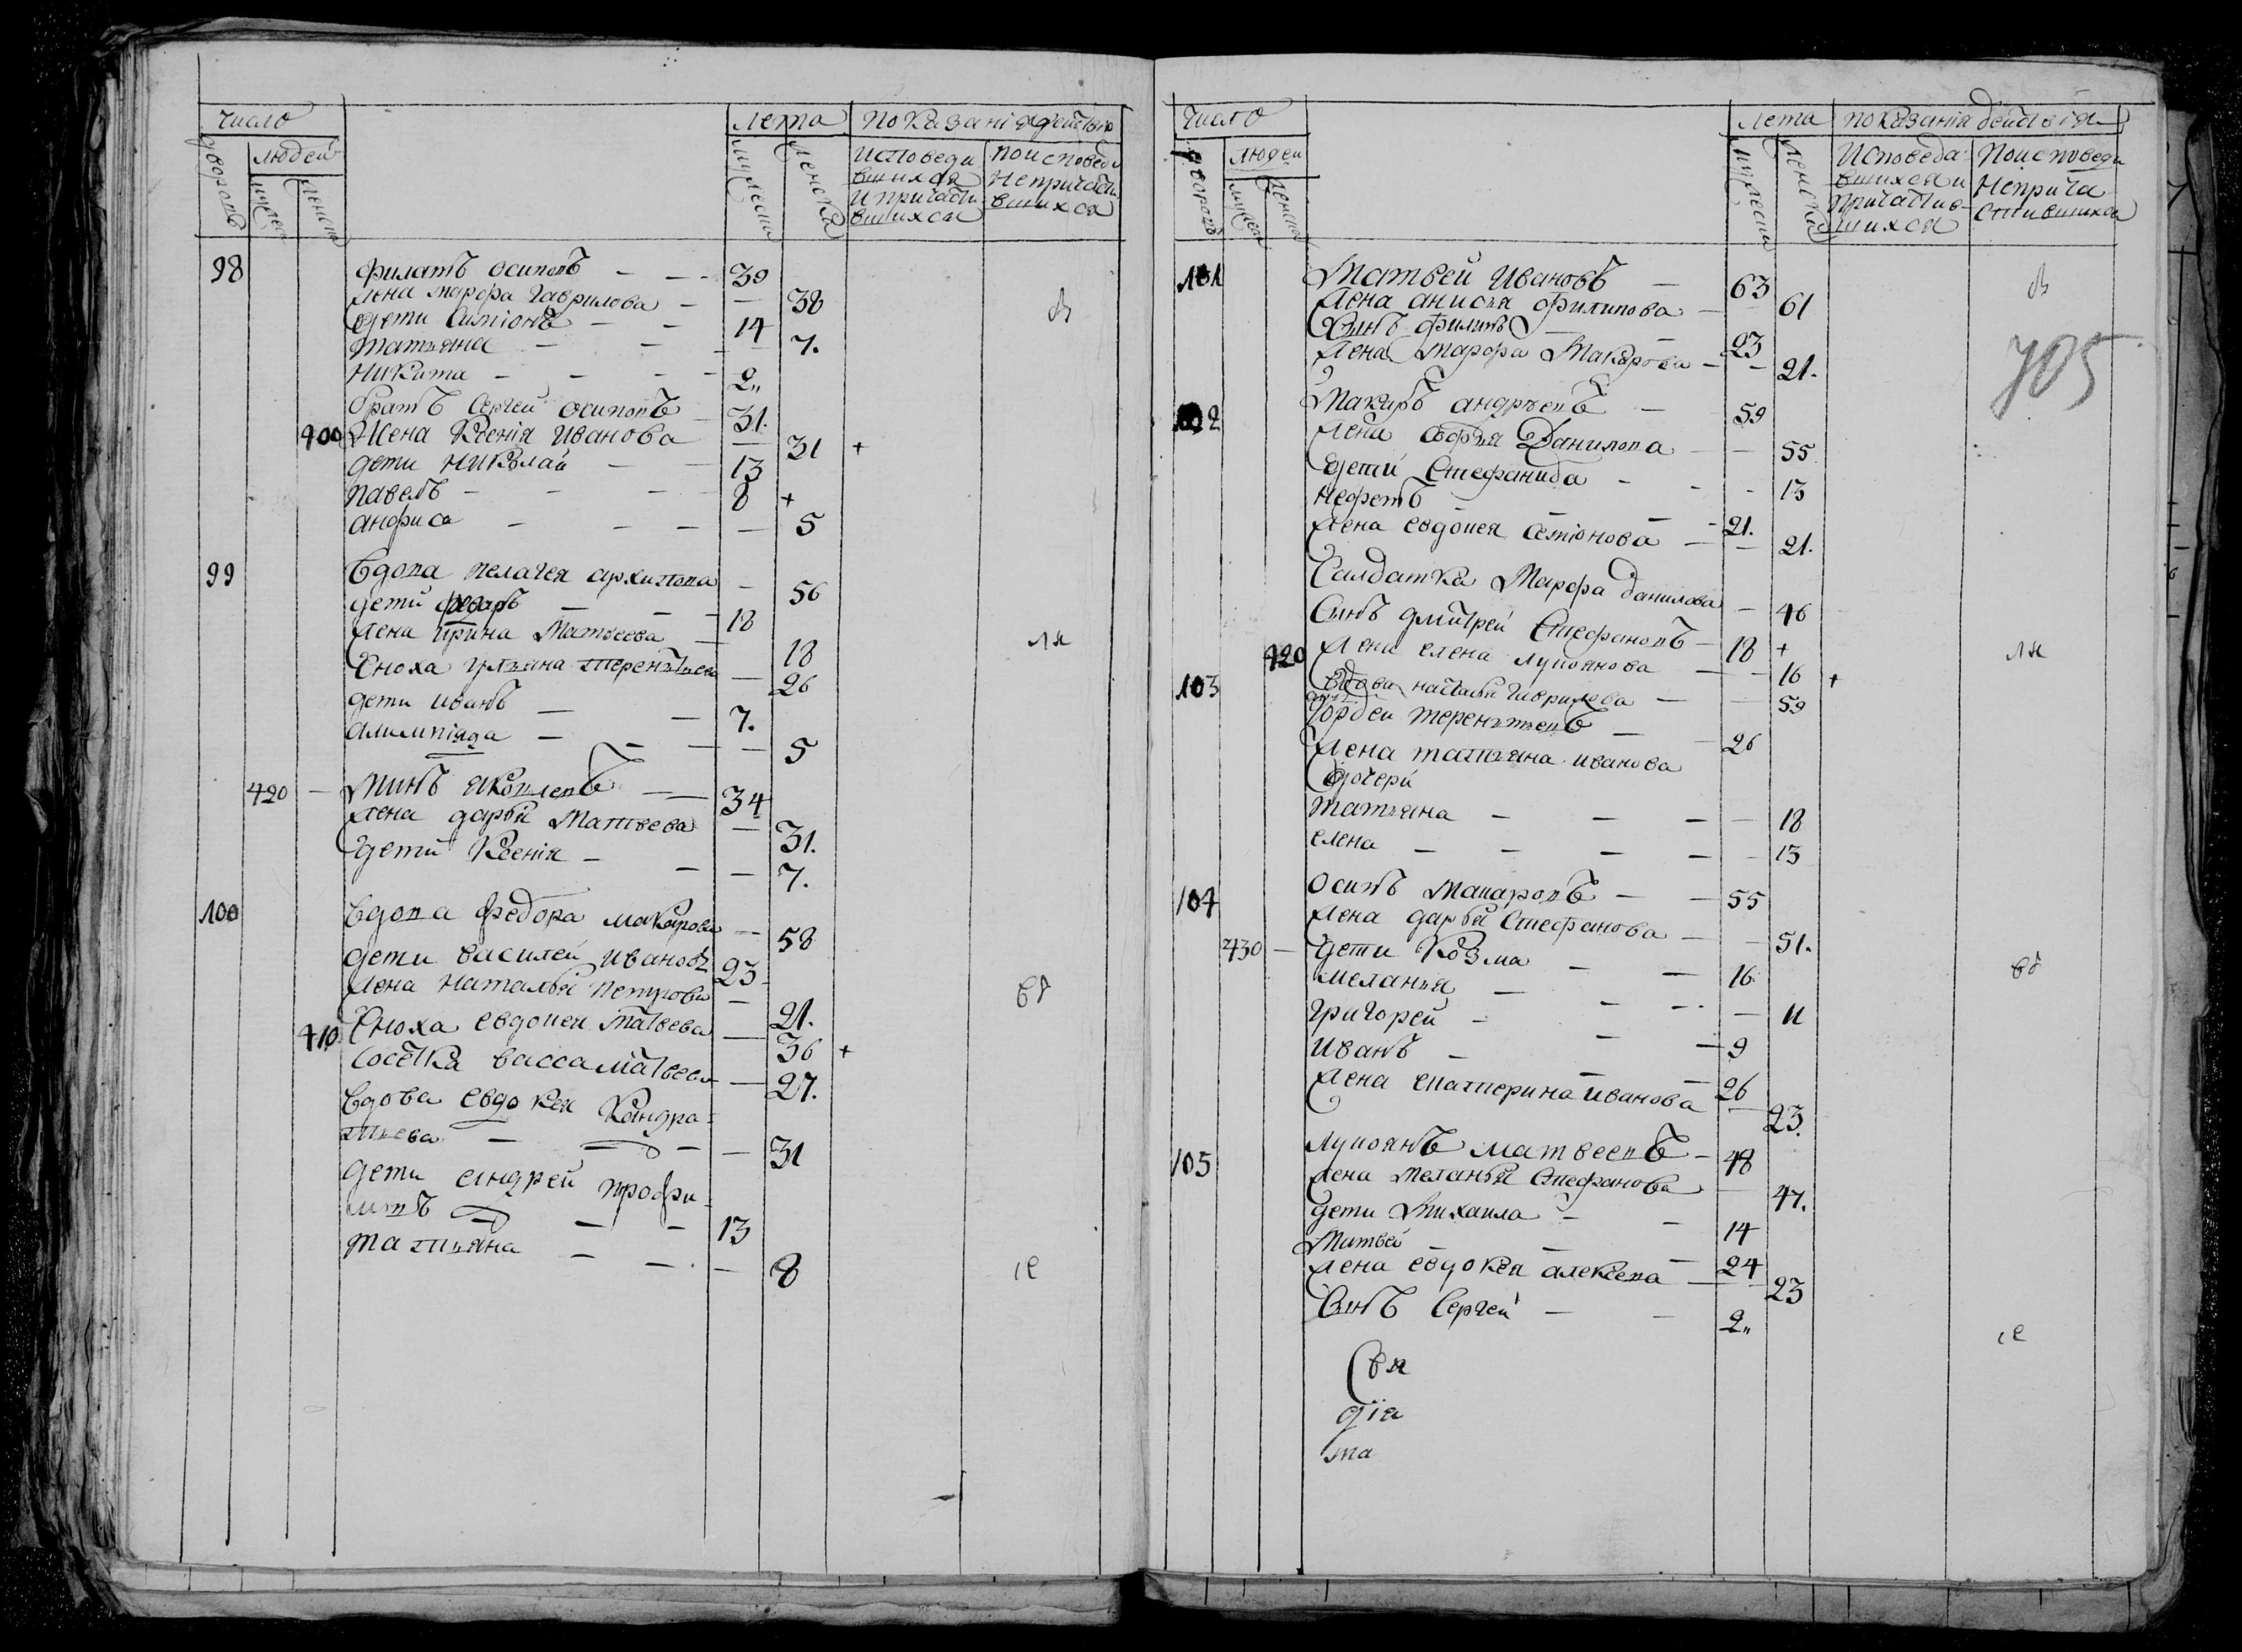 число
лета
показанія действъ
дворовъ
людей
мужеска
женска
мужеска
женска
исповеда
вшихся
и причасти
вшихся
поисповеда
непричасти
вшихся
98 филатъ осиповъ 39
жена марфа гаврилова 38
дети симіонъ 14
татьяна 7.
никита 2,,
братъ сергей осиповъ 31.
400 жена ксенія иванова 31 +
дети николай 13
павелъ 8 +
анфиса 5
99 вдова пелагея архипова 56
дети федоръ 18
жена ирина матвеева 18
сноха ульяна терентьева 26
дети иванъ 7.
алимпіяда 5
420 минъ яковлевъ 34
жена дарья матвеева 31.
дети ксенія 7.
100 вдова федора макарова 58
дети василей ивановъ 23
жена наталья петрова 21.
410 сноха евдокея матвеева 36 +
соседка васса матвеева 27.
вдова евдокея кондра-
тьева 31
дети андрей трофи-
мовъ 13
татьяна 8
въ
ля
бд
іе
число
лета
показаніа действія
дворовъ
людей
мужеска
женска
мужеска
женска
исповеда-
вшихся и
причастив-
шихся
поисповеди
неприча-
стившихся
101 матвей ивановъ 63
жена анисья филипова 61
сынъ филипъ 23
жена марфа макарова 21.
102 макаръ андреевъ 59
жена софья данилова 55
дети стефанида 13
нефетъ 21.
жена евдокея семіонова 21.
салдатка марфа данилова 46
сынъ дмитрей стефановъ 18 +
420 жена елена лукоянова 16 +
103 вдова наталья гаврилова 59
дети
гордеи терентьевъ 26
жена татьяна иванова
дочери
татьяна 18
елена 13
104 осипъ макаровъ 55
жена дарья стефанова 51.
430 дети козма 16
меланья 11
григорей 9
иванъ 26
жена екатерина иванова 23.
105 лукоянъ матвеевъ 48
жена меланья стефанова 47.
дети михаила 14
матвей 24
жена евдокея алексеева 23
сынъ сергей 2,,
свя
діа
та
705
въ
ля
бд
іе